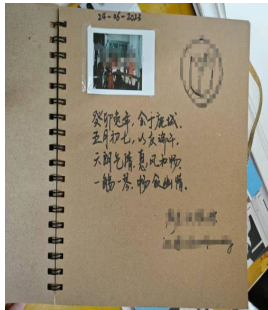 24-06-2023
癸卯兔年,会于城.
五月初七,以端午.
天朗气清,惠风和畅.
一觞一琴,畅叙幽情.